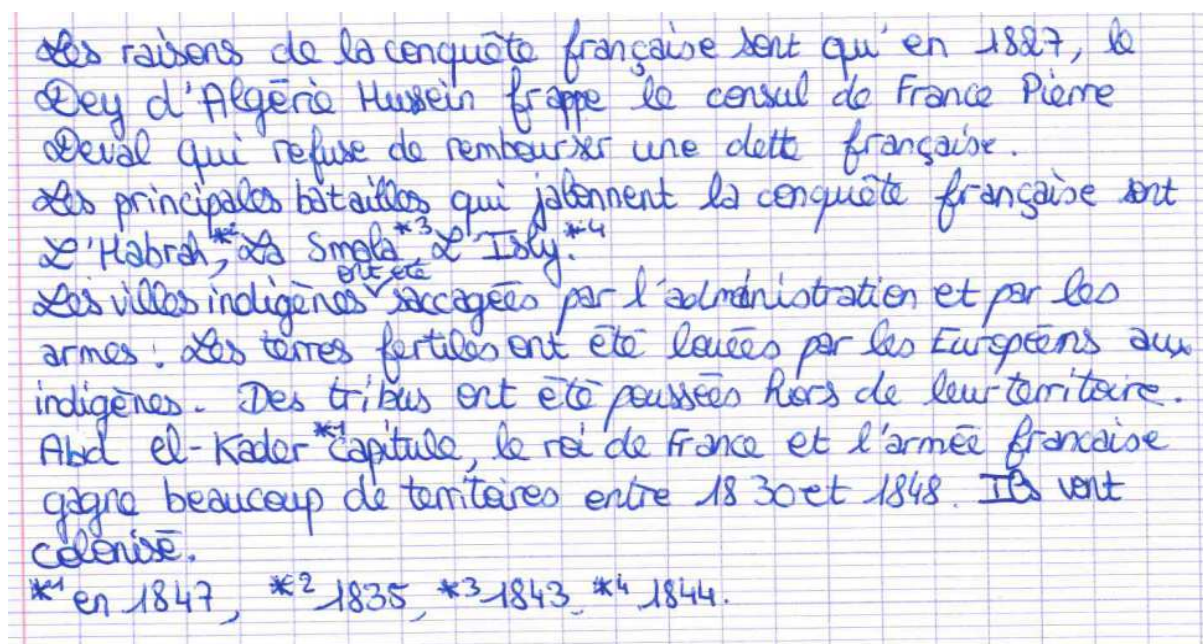 Les raisons de la conquête française sont qu'en 1827, le
Dey d'Algérie Hussein frappe le consul de France Pierre
Deval qui refuse de rembourser une dette française.
Les principales batailles qui jalonnent la conquête française sont
L'Habrah,*2 La Smala*3 L'Isly.*4
ont été
Les villes indigènes saccagées par l'administration et par les
armes. Les terres fertiles ont été louées par les Européens aux
indigènes. Des tribus ont été poussées hors de leur territoire.
Abd el-Kader*1 capitule, le roi de France et l'armée francaise
gagne beaucoup de territoires entre 1830 et 1848. Ils vont
colonisé.
*1 en 1847, *2 1835, *3 1843, *4 1844.